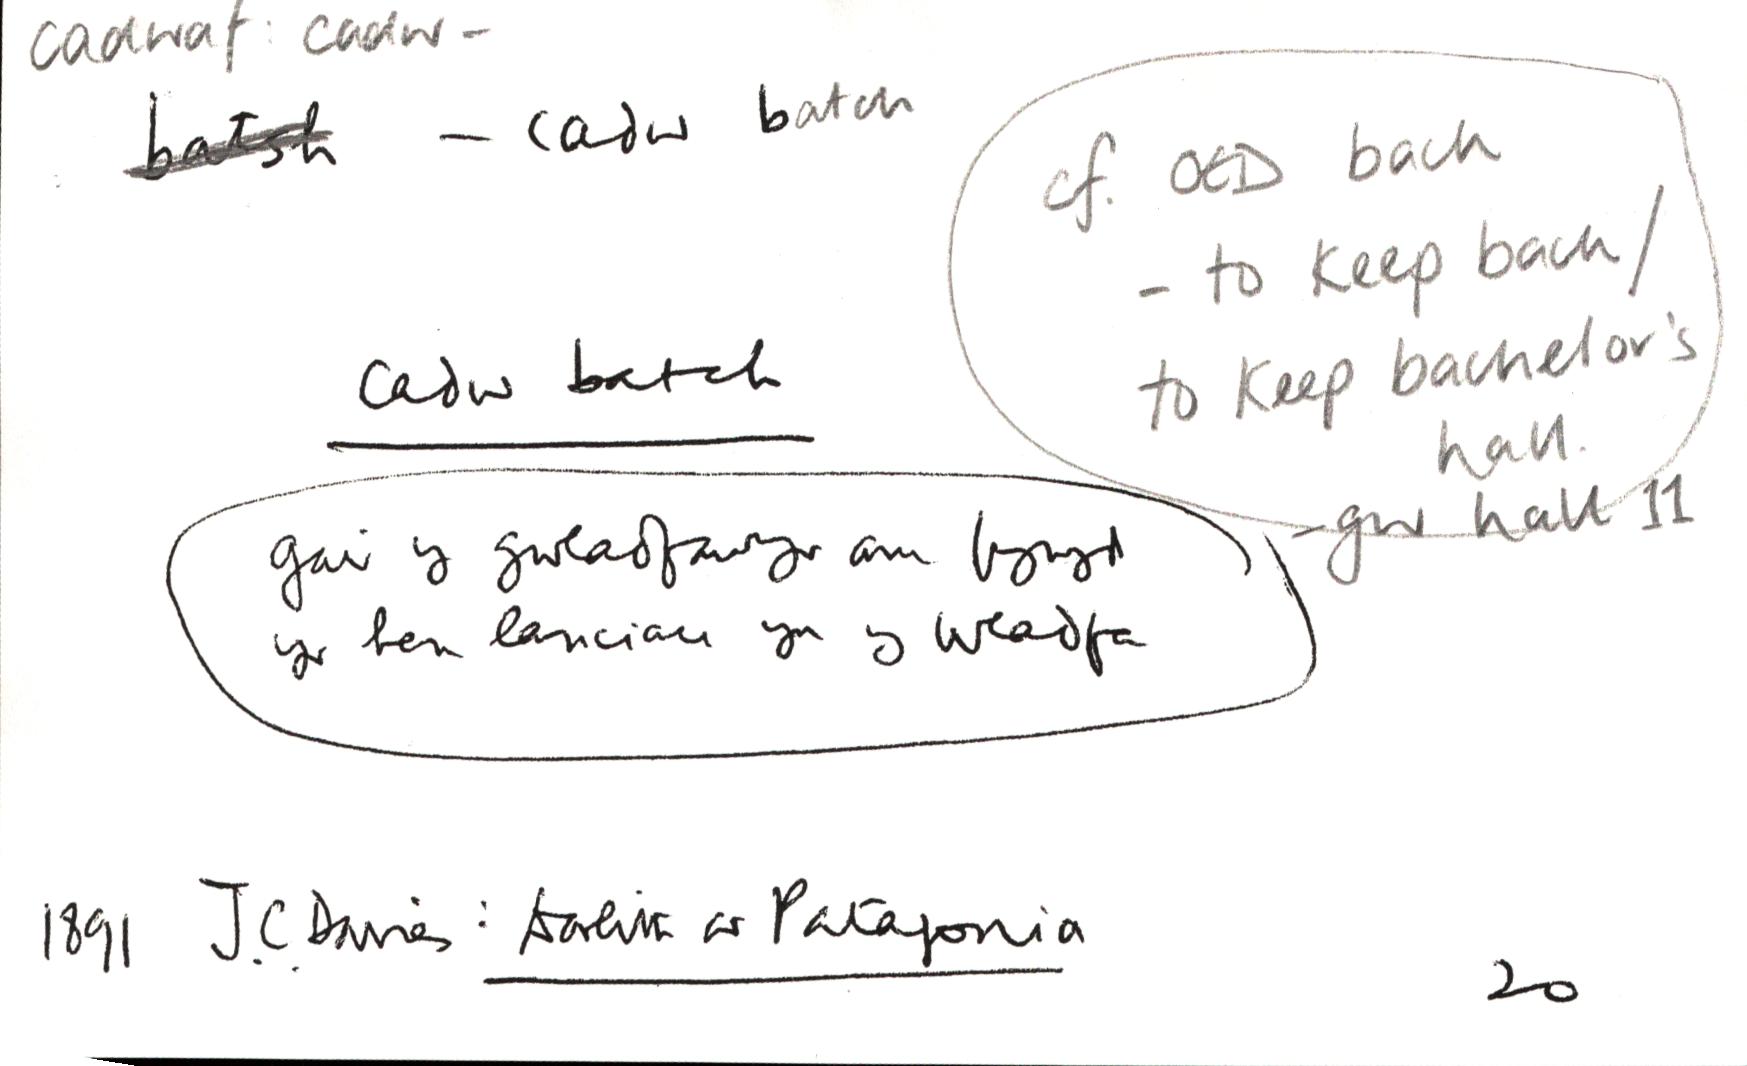 cadwaf: cadw -
batsh - cadw batch
cf. OED bach
- to keep bach/
to keep bachelor's
hall.
- gw hall 11
cadw batch
gair y gwladfawyr am fywyd
yr hen lanciau yn y Wladfa
1891 J.C. Davies: darlith ar Patagonia
20